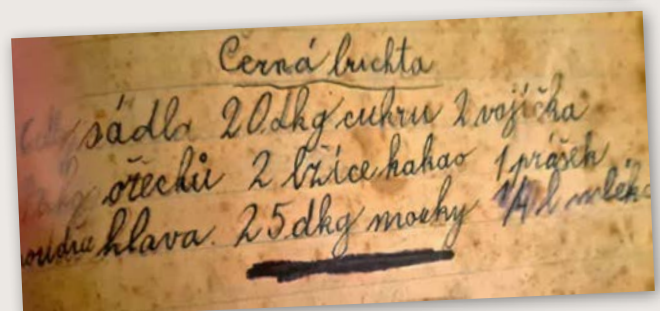 Černá buchta
sádla 20dkg cukru 2 vajíčka
ořechů 2 lžíce kakao 1 prášek
hlava. 25dkg mouky 1/4 l mléka